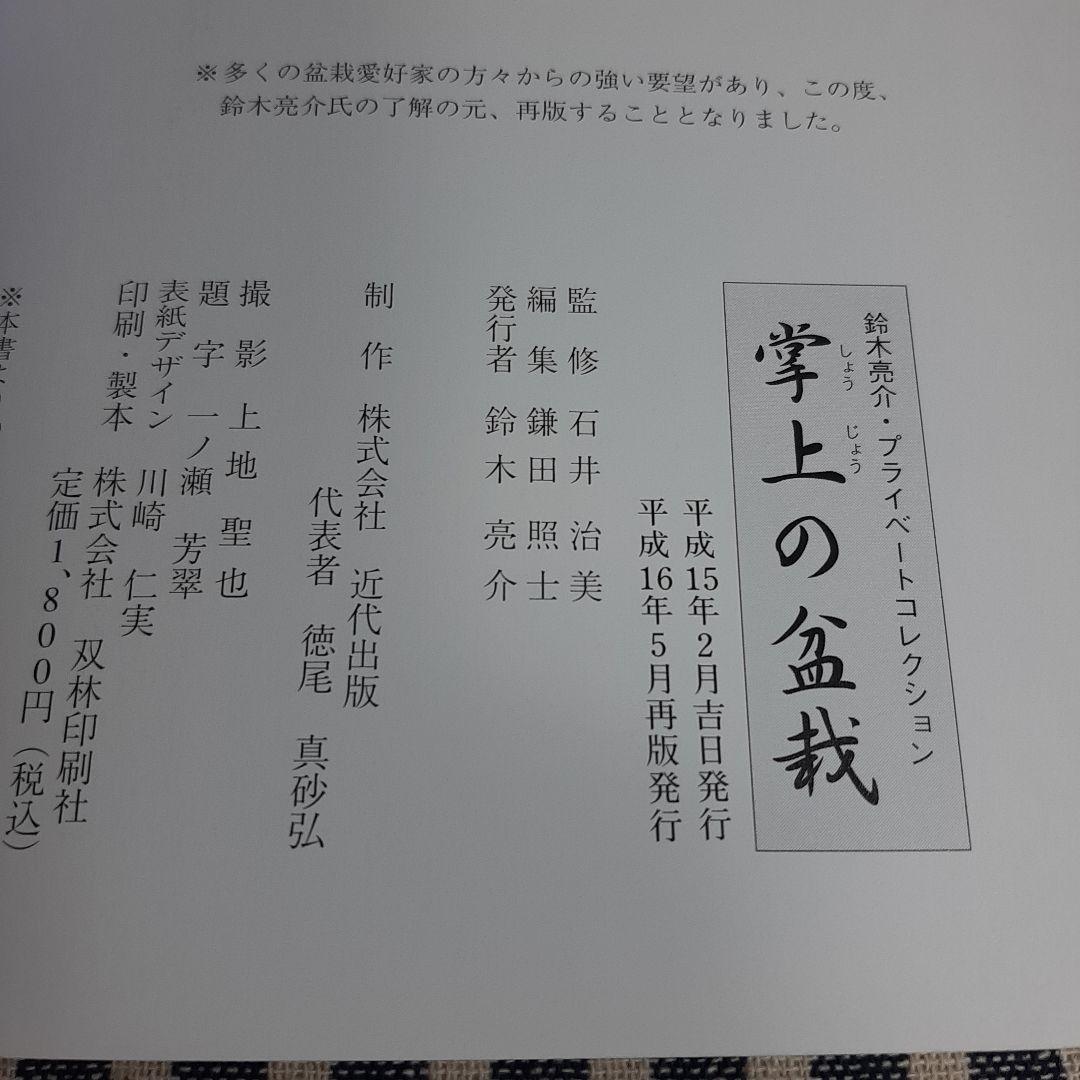 ※多くの盆栽愛好家の方々からの強い要望があり、この度、
鈴木亮介氏の了解の元、再版することとなりました。
鈴木亮介・プライベートコレクション
掌上の盆栽
しょう じょう
平成15年2月吉日発行
平成16年5月再版発行
監修 石井 治美
編集 鎌田 照士
発行者 鈴木 亮介
制作 株式会社 近代出版
代表者 徳尾 真砂弘
撮影 上地 聖也
題字 一ノ瀬 芳翠
表紙デザイン 川崎 仁実
印刷・製本 株式会社 双林印刷社
定価1、800円（税込）
※本書